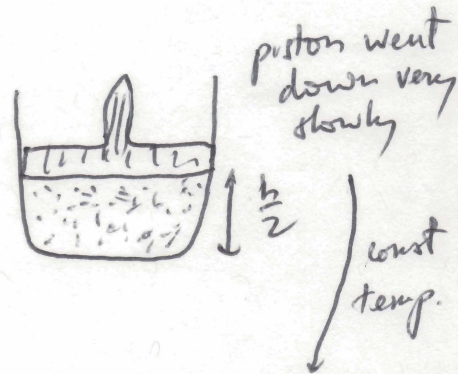 piston went
down very
slowly
h/2
const
temp.